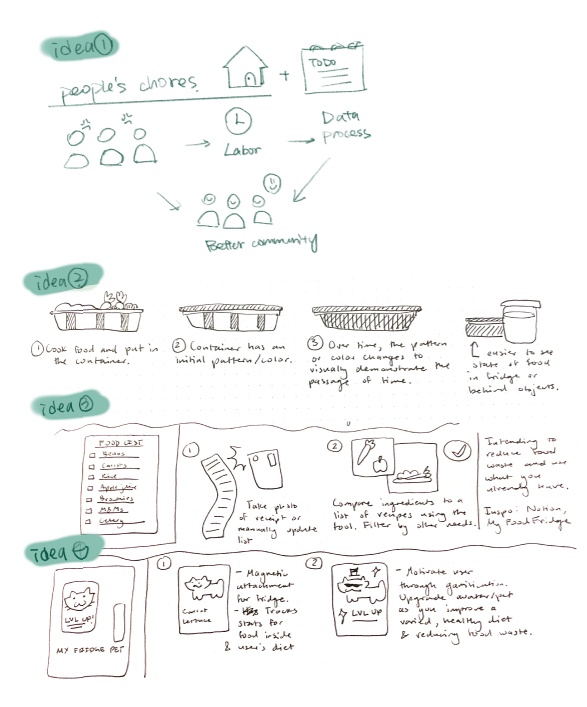 idea ①
people's chores.
+
TODO
Labor
Data
process
Better community
idea ②
① Cook food and put in
the container.
② Container has an
initial pattern/color.
③ Over time, the pattern
or color changes to
visually demonstrate the
passage of time.
easier to see
state of food
in fridge or
behind objects.
idea ③
FOOD LIST
Beans
Carrots
Rice
Apple juice
Brownies
M&Ms
Celery
①
Take photo
of receipt or
manually update
list
②
Compare ingredients to a
list of recipes using the
tool. Filter by other needs.
Intending to
reduce food
waste and use
what you
already have.
Inspo: Notion,
My Food Fridge
idea ④
LVL UP!
MY FRIDGE PET
①
Carrot
Lettuce
- Magnetic
attachment
for fridge.
- Tracks
stats for
food inside
& user's diet
②
LVL UP
- Motivate user
through gamification.
Upgrade avatar/pet
as you improve a
varied, healthy diet
& reducing food waste.